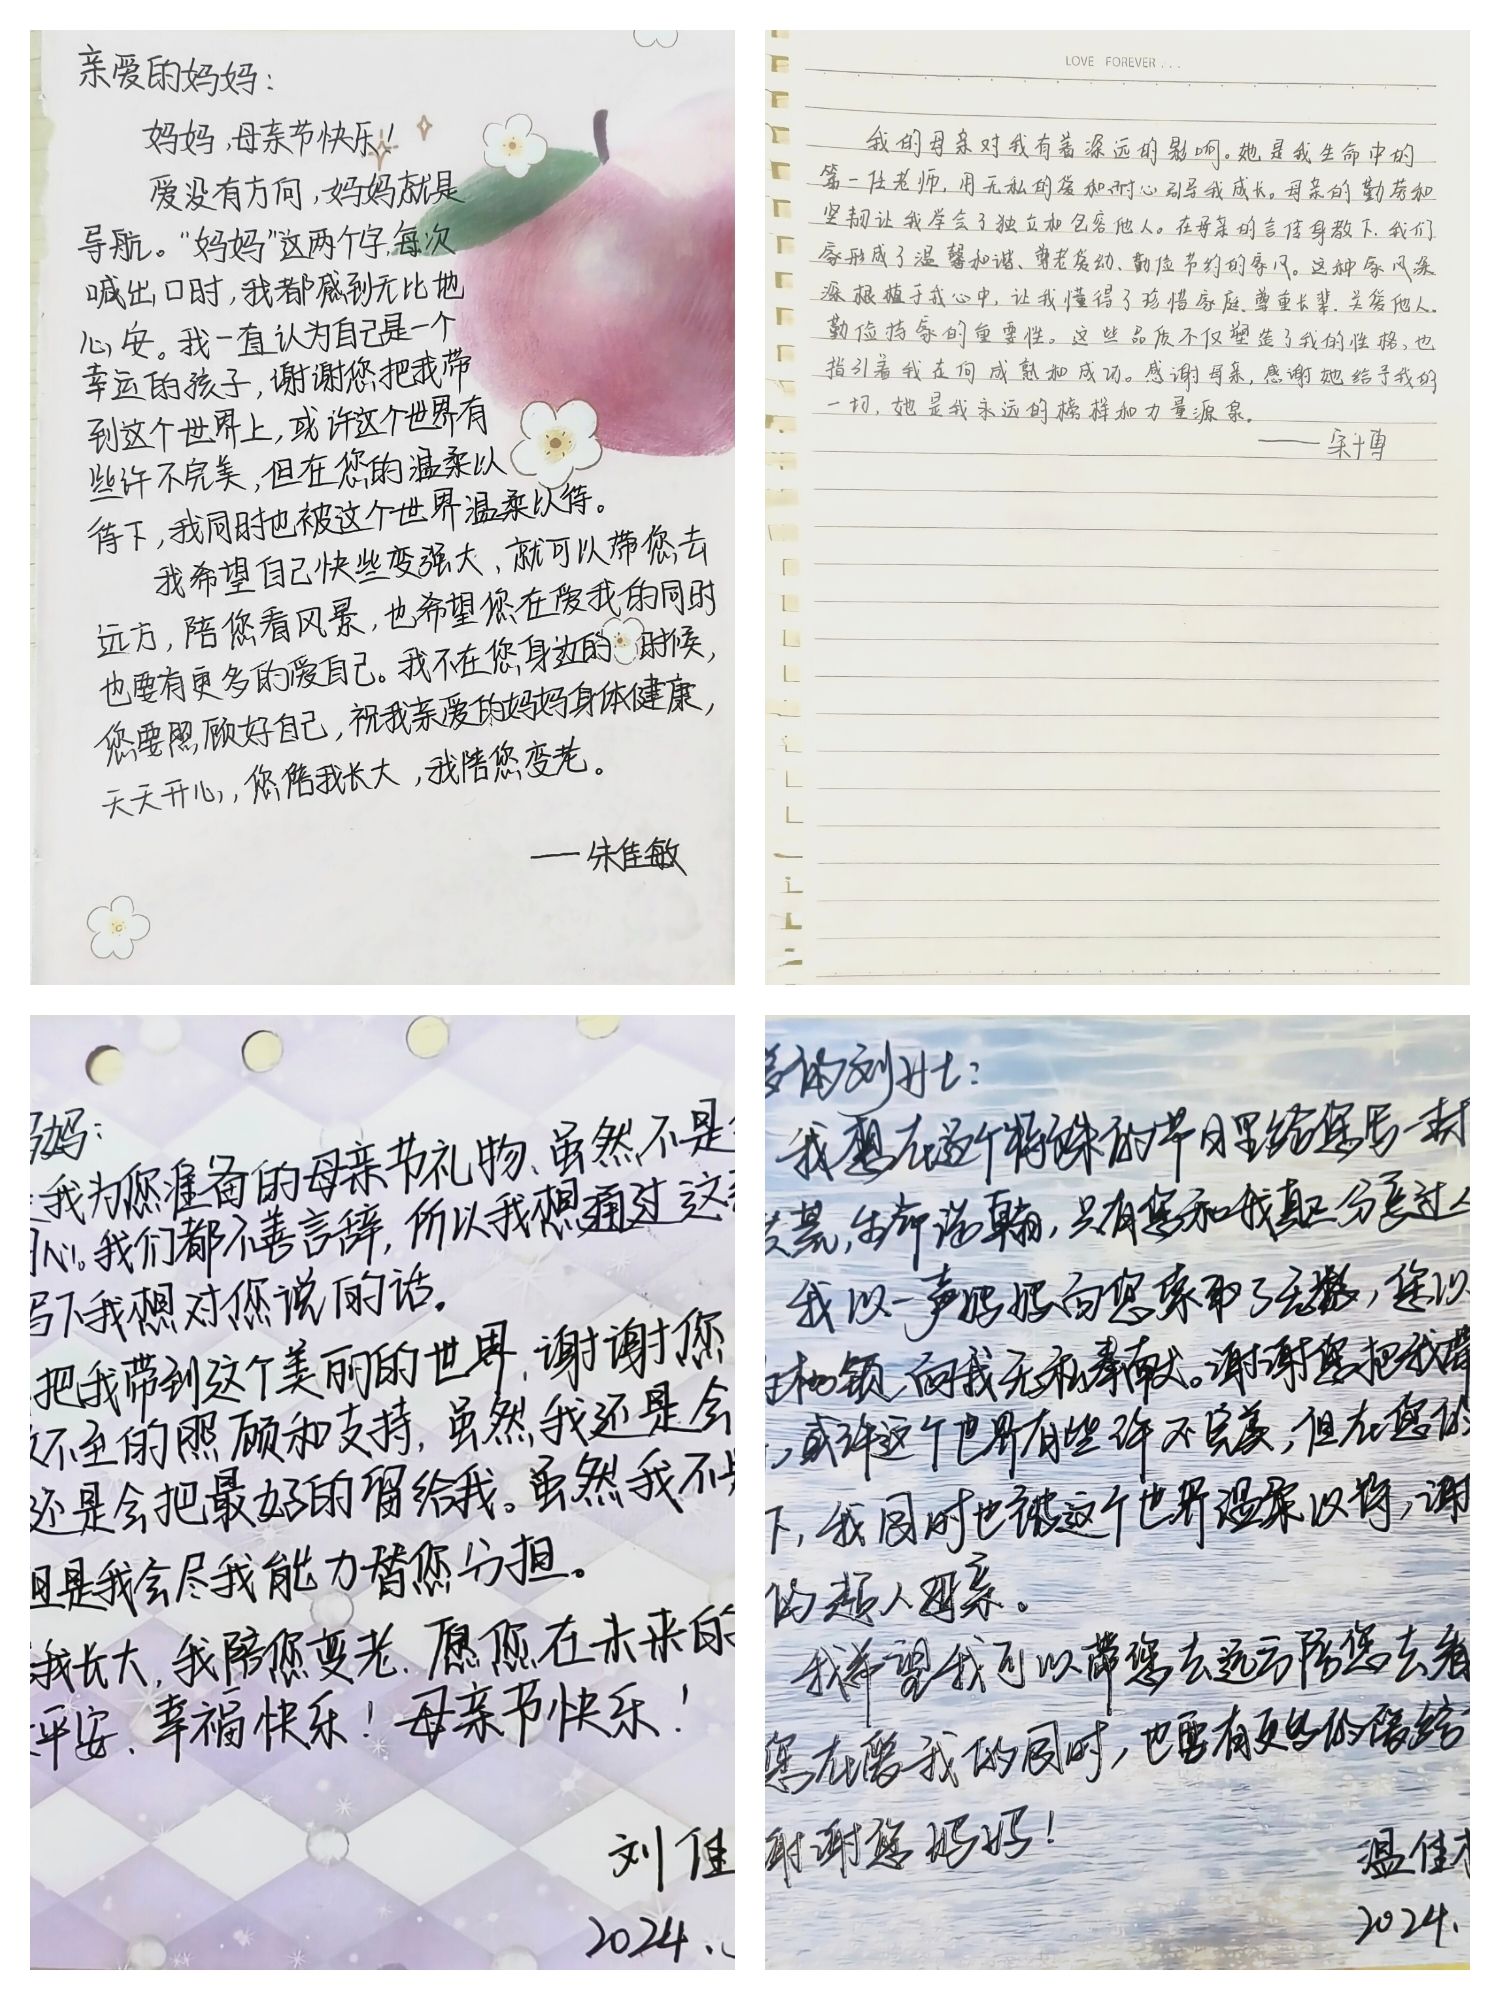 亲爱的妈妈：
妈妈，母亲节快乐！
爱没有方向，妈妈就是
导航。“妈妈”这两个字，每次
喊出口时，我都感到无比地
心安。我一直认为自己是一个
幸运的孩子，谢谢您把我带
到这个世界上，或许这个世界有
些许不完美，但在您的温柔以
待下，我同时也被这个世界温柔以待。
我希望自己快些变强大，就可以带您去
远方，陪您看风景，也希望您在爱我的同时
也要有更多的爱自己。我不在您身边的时候，
您要照顾好自己，祝我亲爱的妈妈身体健康，
天天开心，您陪我长大，我陪您变老。
——朱佳敏
LOVE FOREVER...
我的母亲对我有着深远的影响。她是我生命中的
第一任老师，用无私的爱和耐心引导我成长。母亲的勤劳和
坚韧让我学会了独立和包容他人。在母亲的言传身教下，我们
家形成了温馨和谐、尊老爱幼、勤俭节约的家风。这种家风深
深根植于我心中，让我懂得了珍惜家庭、尊重长辈、关爱他人、
勤俭持家的重要性。这些品质不仅塑造了我的性格，也
指引着我走向成熟和成功。感谢母亲，感谢她给予我的
一切，她是我永远的榜样和力量源泉。
妈：
我为您准备的母亲节礼物，虽然不是
心。我们都不善言辞，所以我想通过这
写下我想对您说的话。
把我带到这个美丽的世界，谢谢您
不至的照顾和支持，虽然我还是会
还是会把最好的留给我。虽然我不
但是我会尽我能力替您分担。
我长大，我陪您变老，愿您在未来的
平安、幸福快乐！母亲节快乐！
刘佳
2024.
的刘女士：
我想在这个特殊的节日里给您写一封
，生命浩瀚，只有您和我真正分享过
我以一声妈妈向您索取了无数，您以
，向我无私奉献。谢谢您把我带
，或许这个世界有些许不完美，但在您的
下，我同时也被这个世界温柔以待，谢
的超人母亲。
我希望我可以带您去远方陪您去看
您在爱我的同时，也要有更多的爱给
谢谢您妈妈！
温佳
2024.